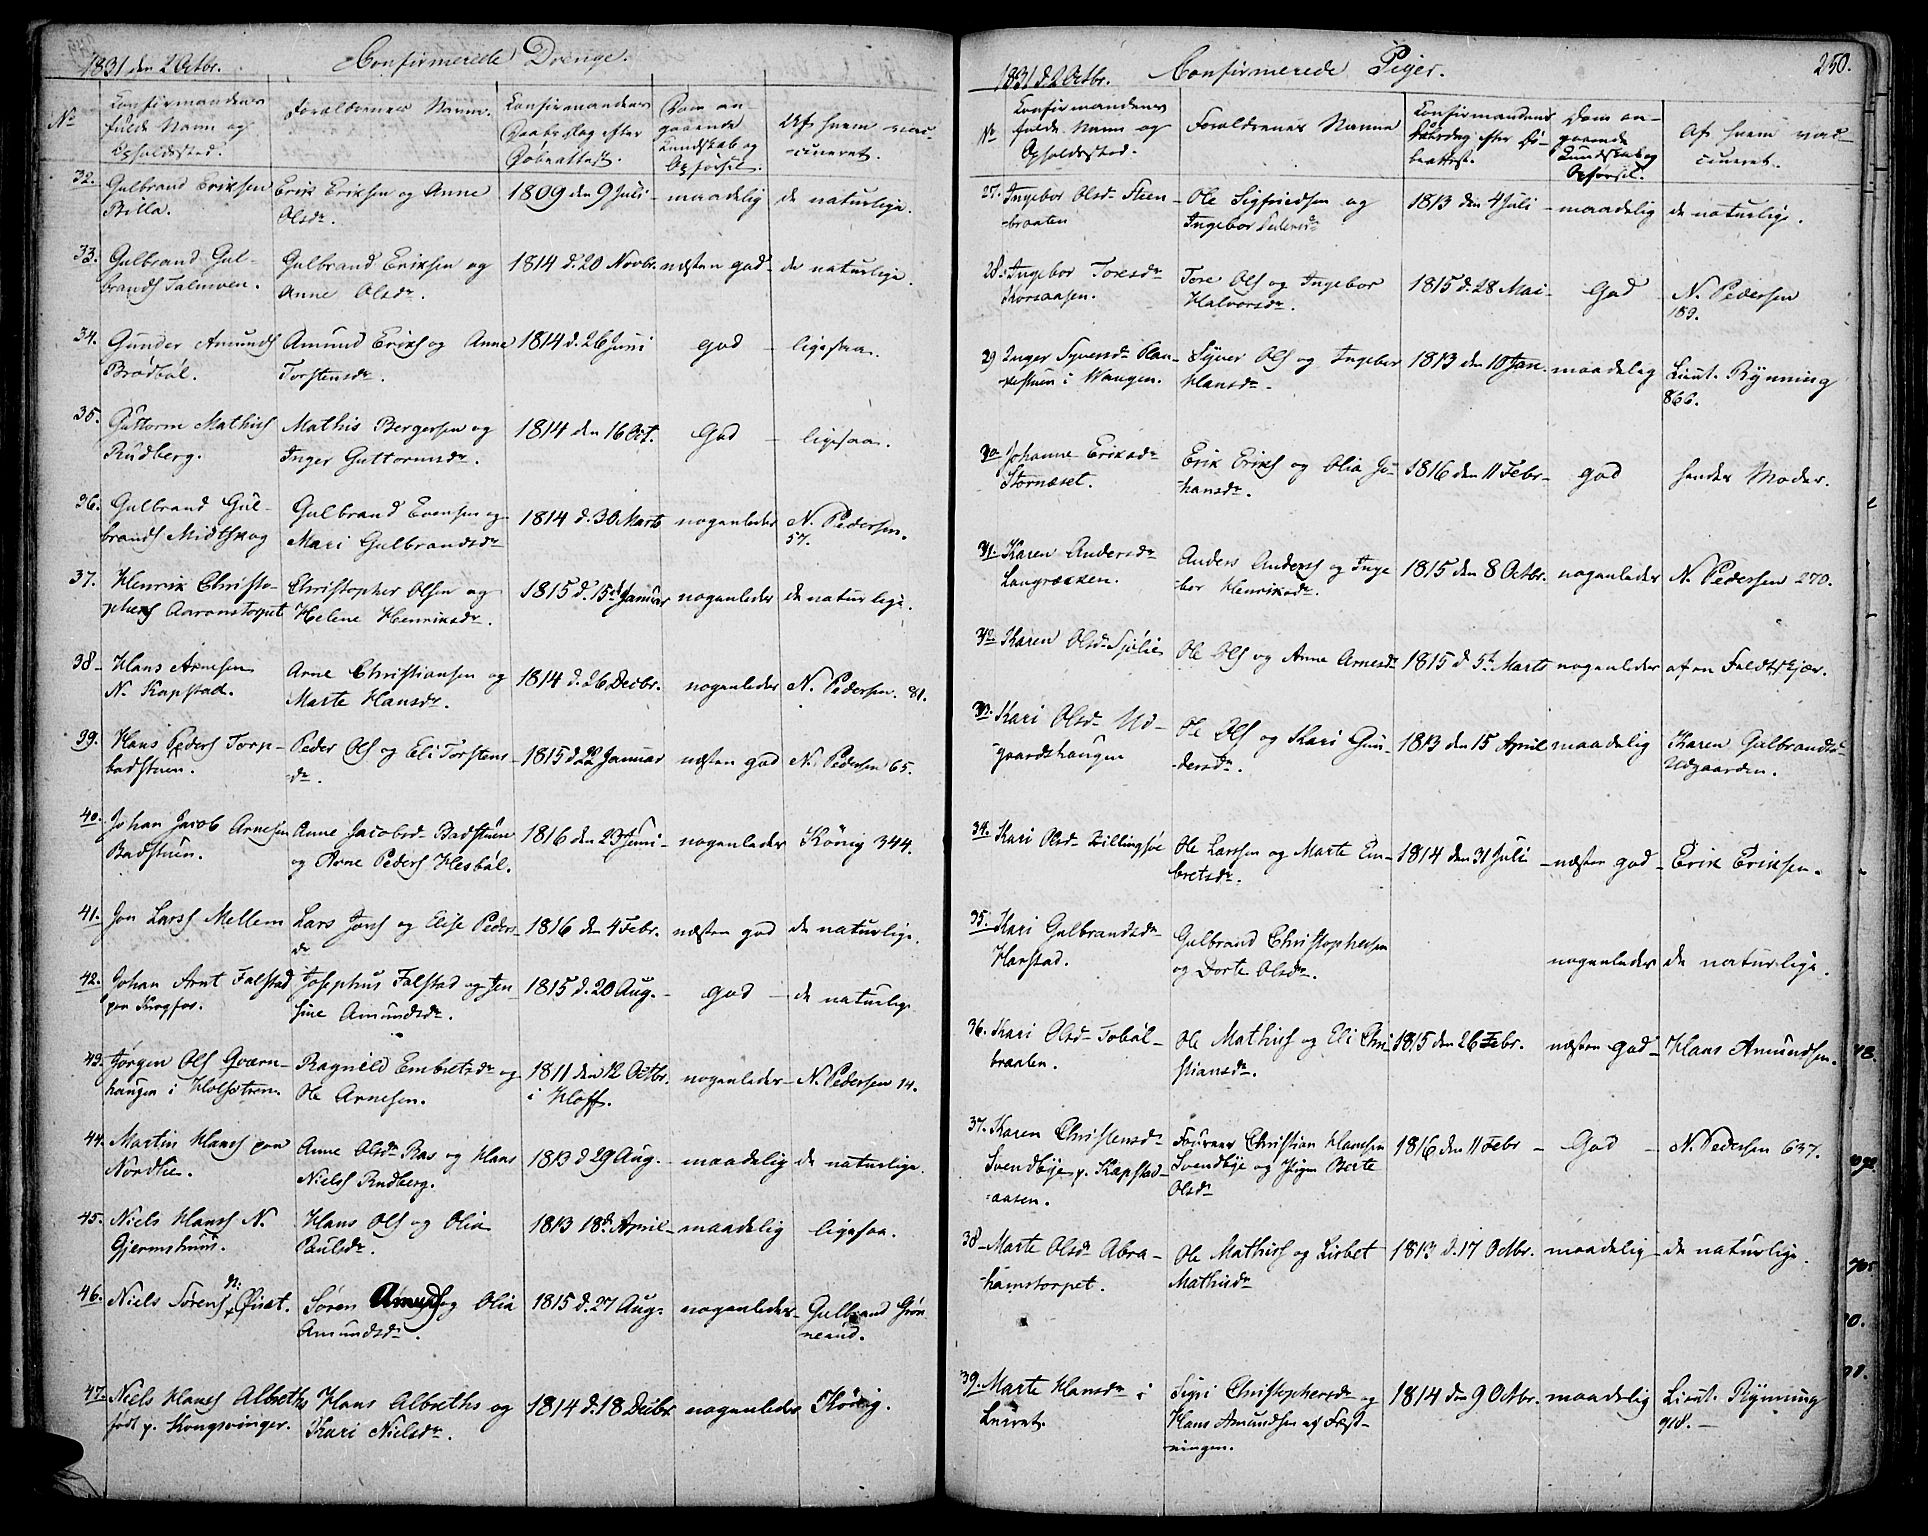 1831 den 2 Octbr. Confirmerede Drenge.
No
Confirmandens
fulde Navn og
Opholdssted.
Forældrenes Navne.
Confirmandens
Daabsdag efter
Døbeattest.
Dom an
gaaende
Kundskab og
Opførsel.
Af hvem vac-
cineret.
32. Gulbrand Eriksen
Billa.
Erik Eriksen og Anne
Olsdr.
1809 den 9 Juli - maadelig
de naturlige.
33. Gulbrand Gul-
brands Talmoen.
Gulbrand Eriksen og
Anne Olsdr.
1814 d. 20 Novbr. næsten god
de naturlige.
34. Gunder Amunds
Brødbøl.
Amund Eriks og Anne
Torstensdr.
1814 d. 26 Juni
god -
ligesaa.
35. Guttorm Mathis
Rudberg.
Mathis Bergersen og
Inger Guttormsdr.
1814 den 16 Oct.
God -
ligesaa.
36. Gulbrand Gul-
brands Midtskog
Gulbrand Evensen og
Mari Gulbrandsdr
1814 d. 30 Marts
noganleder
N. Pedersen.
57.
37. Henrik Christo-
phers Aaranstorpet
Christopher Olsen og
Helene Henriksdr.
1815 d. 15d Januar
noganleder
de naturlige.
38 - Hans Arnesen
N. Kapstad.
Arne Christiansen og
Marte Hansdr.
1814 d. 26 Decbr.
noganleder
N. Pedersen. 81.
39. Hans Peders Torp-
badstuen.
Peder Ols og Eli Torstens
dr.
1815 d 22 Januar
næsten god
N. Pedersen 65.
40. Johan Jacob Arnesen
Badstuen.
Anne Jacobsd Badstuen
og Arne Peders Hesbøl.
1816 den 23 Juni -
noganleder
König 344.
41. Jon Lars Mellem
Lars Jons og Elise Peders
dr
1816 den 4 Febr.
næsten god
de naturlige.
42. Johan Arnt Falstad
paa Kurgfos.
Josephus Falstad og Jen-
sine Amundsdr.
1815 d. 20 Aug. -
God -
de naturlige
43. Jørgen Ols Qværn-
haugen i Holsetrøen.
Ragnild Embretsdr og
Ole Arnesen.
1811 den 12 Octbr.
i Hoff.
noganleder
N. Pedersen 14.
44. Martin Hans paa
Nordlie.
Anne Olsdr Ras og Hans
Niels Rudberg.
1813 d 29 Aug. -
maadelig
de naturlige.
45. Niels Hans N.
Gjermshuus.
Hans Ols og Olia
Paulsdr.
1813 18d April -
maadelig
ligesaa.
46. Niels Sørens N. Øisæt.
Søren og Olia
Amundsdr.
1815 d. 27 Aug.
noganleder
Gulbrand Grøn
neaud.
47. Niels Hans Albreths
født p. Kongsvinger.
Hans Albreths og
Kari Nielsdr.
1814 d. 18 Decbr
noganleder
König.
1831 d. 2 Octbr. Confirmerede Piger. 250.
No
Confirmandens
fulde Navn og
Opholdssted.
Forældrenes Navne
Confirmandens
Daabsdag efter Dø-
beattest.
Dom an-
gaaende
Kundskab og
Opførsel.
Af hvem vac-
cineret.
27. Ingebor Olsdr Steen
braaten
Ole Sigfriedsen og
Ingebor Pedersdr
1813 den 4 Juli -
maadelig
de naturlige.
28. Ingebor Toresdr
Korsaasen.
Tore Ols og Ingebor
Halvorsdr.
1815 d. 28 Mai -
God -
N. Pedersen
189.
29 Inger Syversdr Plan-
kestuen i Wangen.
Syver Ols og Ingebor
Hansdr.
1813 den 10 Jan.
maadelig
Lieut. Rynning
866.
30 Johanne Eriksdr
Stornæset.
Erik Eriks og Olia Jo-
hansdr.
1816 den 11 Febr -
god
hendes Moder.
31. Karen Andersdr
Langræesen.
Anders Anders og Inge
bor Henriksdr.
1815 den 8 Octbr.
noganleder
N. Pedersen 270.
32 Karen Olsdr Sjølie
Ole Ols og Anne Arnesdr
1815 d 5t Marts
noganleder
af en Feldtskjær.
33. Kari Olsdr Ud-
gaardshaugen
Ole Ols og Kari Gun-
dersdr.
1813 den 15 April
maadelig
Karen Gulbrandsdr
Udgaarden.
34. Kari Olsdr Billingsøe
Ole Larssen og Marte Em-
bretsdr.
1814 den 31 Juli
næsten god
Erik Eriksen.
35. Kari Gulbrandsdr
Harstad.
Gulbrand Christophersen
og Dorte Olsdr.
noganleder
de naturlige.
36. Kari Olsdr Tobøl-
braaten.
Ole Mathis og Eli Chri
stiansdr.
1815 den 26 Febr.
næsten god -
Hans Amundsen.
37. Karen Christensdr
Svendbye p. Kapstad
aasen.
Fourer Christian Hansen
Svendbye og Pigen Berte
Olsdr
1816 den 11 Febr -
God -
N. Pedersen 637.
38 - Marte Olsdr Abra-
hamstorpet.
Ole Mathis og Lisbet
Mathisdr
1813 d. 17 Octbr.
maadelig
de naturlige.
39. Marte Hansdr i
Leiret.
Sigri Christophersdr og
Hans Amundsen af Fæst-
ningen.
1814 den 9 Octbr.
maadelig
Lieut. Rynning
918. -